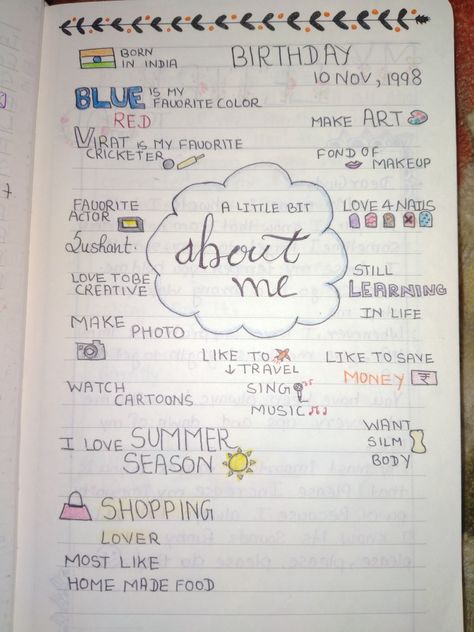 BORN
IN INDIA
BIRTHDAY
10 NOV, 1998
BLUE IS MY
FAVORITE COLOR
RED
MAKE ART
VIRAT IS MY FAVORITE
CRICKETER
FOND OF
MAKEUP
FAVORITE
ACTOR
Sushant.
A LITTLE BIT
about
me
LOVE 4 NAILS
LOVE TO BE
CREATIVE
STILL
LEARNING
IN LIFE
MAKE PHOTO
LIKE TO
TRAVEL
LIKE TO SAVE
MONEY ₹
WATCH
CARTOONS
SING
MUSIC
I LOVE SUMMER
SEASON
WANT
SILM
BODY
SHOPPING
LOVER
MOST LIKE
HOME MADE FOOD